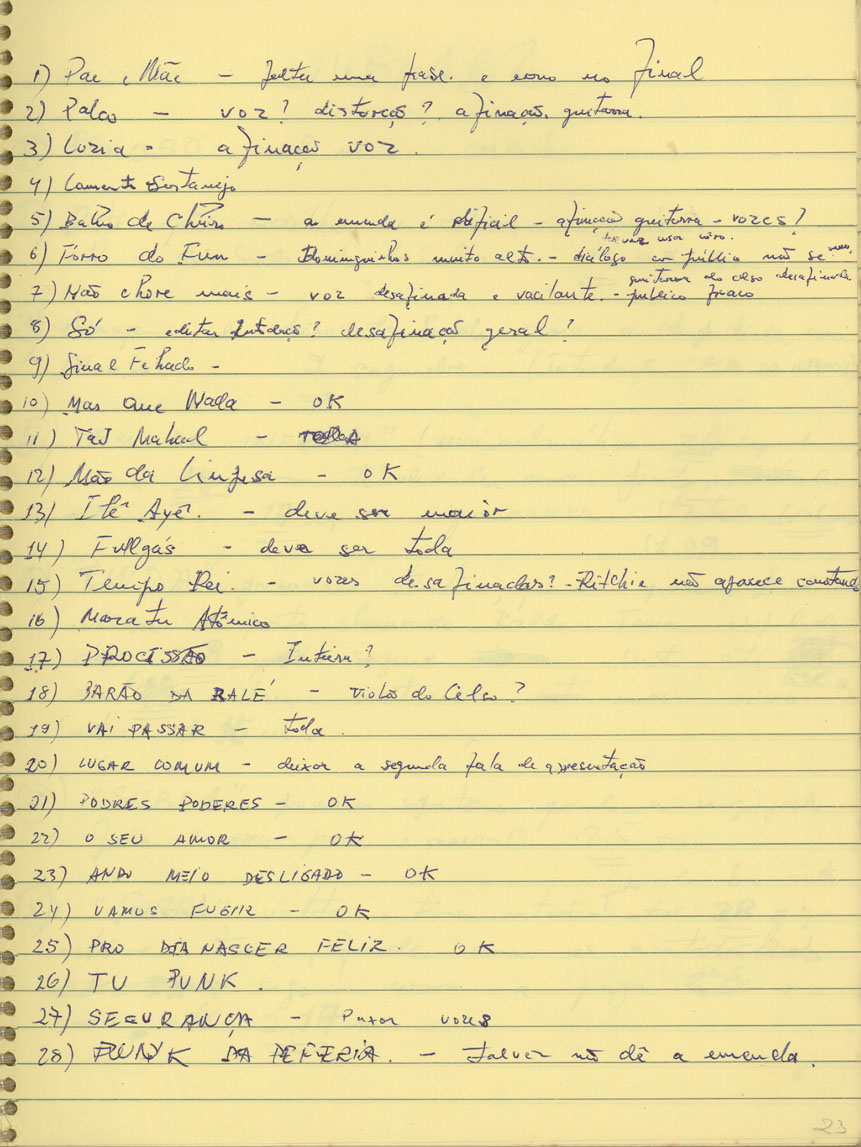 1) Pai e Mãe - falta uma frase. e como no final
2) Palco - voz? distorção? afinação. guitarra.
3) Luzia - afinação voz.
4) Lamento Sertanejo
5) Banho de Cheiro - a emenda é dificil - afinação guitarra - vozes?
talvez usar coro.
6) Forró do Fun - Dominguinhos muito alto. - diálogo com público não se
guitarra do Celso desafinada
7) Não chore mais - voz desafinada e vacilante. - publico fraco
8) Só - editar introdução? desafinação geral?
9) Sinal Fechado -
10) Mas Que Nada - OK
11) Taj Mahaul - TODA
12) Mão da Limpesa - OK
13) Ilê Ayê. - deve ser maior
14) Fullgás - deve ser toda
15) Tempo Rei. - vozes desafinadas? - Ritchie não aparece cantando
16) Maracatu Atômico
17) PROCISSÃO - Inteira?
18) BARÃO DA RALÉ - Violão do Celso?
19) VAI PASSAR - toda.
20) LUGAR COMUM - deixar a segunda fala de apresentação
21) PODRES PODERES - OK
22) O SEU AMOR - OK
23) ANDO MEIO DESLIGADO - OK
24) VAMOS FUGIR - OK
25) PRO DIA NASCER FELIZ. OK
26) TU PUNK.
27) SEGURANÇA - Puxar vozes
28) PUNK DA PEFERIA. - talvez não dê a emenda.
23